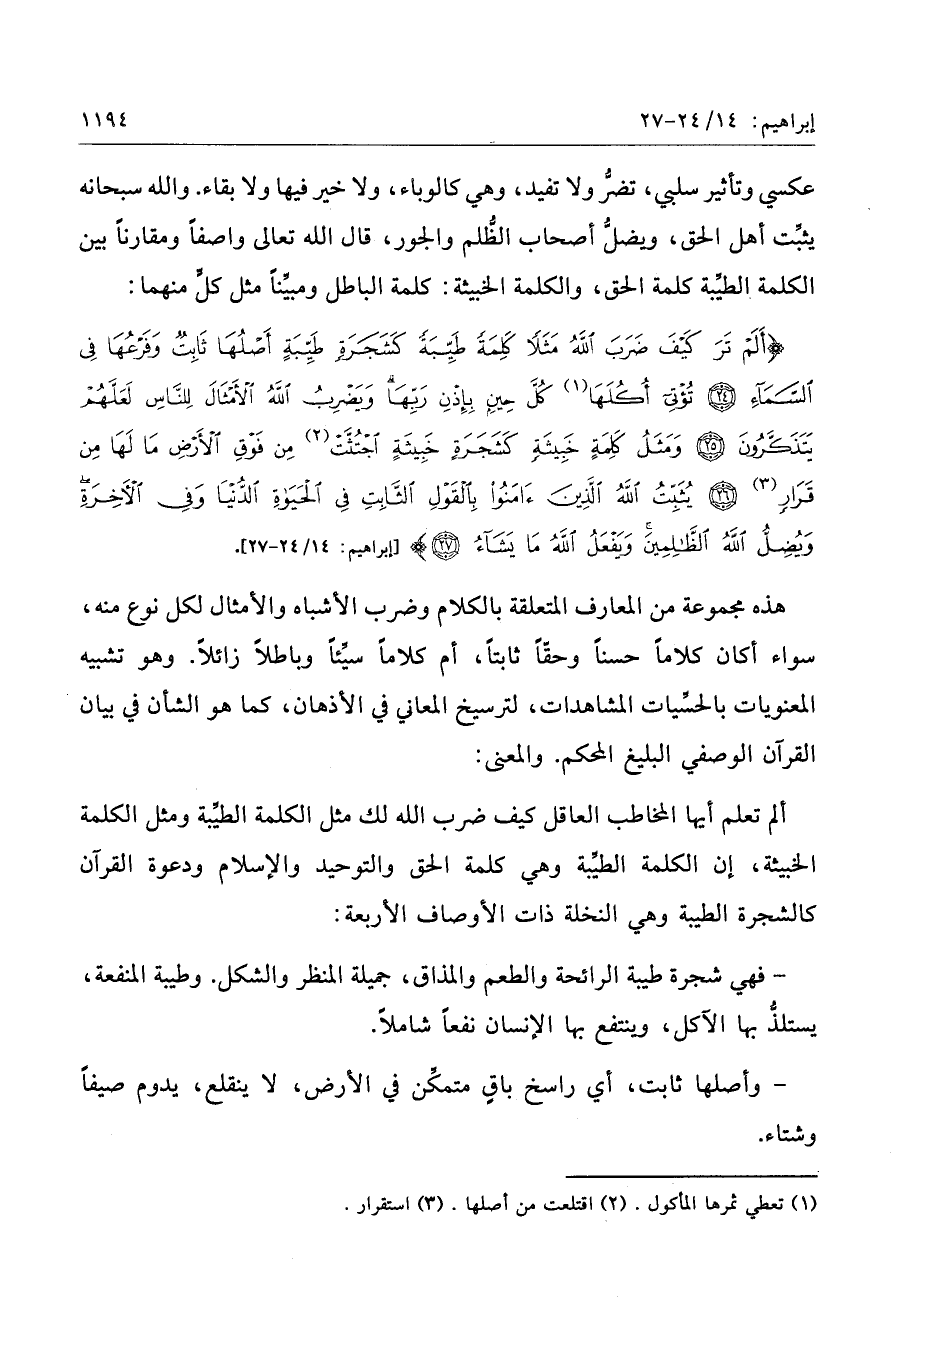 إبراهيم: ١٤/ ٢٤-٢٧ ١١٩٤
عكسي وتأثير سلبي، تضرُّ ولا تفيد، وهي كالوباء، ولا خير فيها ولا بقاء. والله سبحانه
يثبِّت أهل الحق، ويضلُّ أصحاب الظُّلم والجور، قال الله تعالى واصفاً ومقارناً بين
الكلمة الطيِّبة كلمة الحق، والكلمة الخبيثة: كلمة الباطل ومبيِّناً مثل كلٍّ منهما:
﴿أَلَمْ تَرَ كَيْفَ ضَرَبَ ٱللَّهُ مَثَلًا كَلِمَةً طَيِّبَةً كَشَجَرَةٍ طَيِّبَةٍ أَصْلُهَا ثَابِتٌ وَفَرْعُهَا فِي
ٱلسَّكَمَآءِ ٢٤ تُؤْتِيٓ أُكُلَهَا(١) كُلَّ حِينٍۭ بِإِذْنِ رَبِّهَاۗ وَيَضْرِبُ ٱللَّهُ ٱلْأَمْثَالَ لِلنَّاسِ لَعَلَّهُمْ
يَتَذَكَّرُونَ ٢٥ وَمَثَلُ كَلِمَةٍ خَبِيثَةٍ كَشَجَرَةٍ خَبِيثَةٍ ٱجْتُثَّتْ(٢) مِن فَوْقِ ٱلْأَرْضِ مَا لَهَا مِن
قَرَارٍ(٣) ٢٦ يُثَبِّتُ ٱللَّهُ ٱلَّذِينَ ءَامَنُوا۟ بِٱلْقَوْلِ ٱلثَّابِتِ فِي ٱلْحَيَوٰةِ ٱلدُّنْيَا وَفِي ٱلْأَخِرَةِۖ
وَيُضِلُّ ٱللَّهُ ٱلظَّٰلِمِينَۚ وَيَفْعَلُ ٱللَّهُ مَا يَشَآءُ ٢٧﴾ [إبراهيم: ١٤/ ٢٤-٢٧].
هذه مجموعة من المعارف المتعلقة بالكلام وضرب الأشباه والأمثال لكل نوع منه،
سواء أكان كلاماً حسناً وحقّاً ثابتاً، أم كلاماً سيِّئاً وباطلاً زائلاً. وهو تشبيه
المعنويات بالحسِّيات المشاهدات، لترسيخ المعاني في الأذهان، كما هو الشأن في بيان
القرآن الوصفي البليغ المحكم. والمعنى:
ألم تعلم أيها المخاطب العاقل كيف ضرب الله لك مثل الكلمة الطيِّبة ومثل الكلمة
الخبيثة، إن الكلمة الطيِّبة وهي كلمة الحق والتوحيد والإسلام ودعوة القرآن
كالشجرة الطيبة وهي النخلة ذات الأوصاف الأربعة:
- فهي شجرة طيبة الرائحة والطعم والمذاق، جميلة المنظر والشكل. وطيبة المنفعة،
يستلذُّ بها الآكل، وينتفع بها الإنسان نفعاً شاملاً.
- وأصلها ثابت، أي راسخ باقٍ متمكِّن في الأرض، لا ينقلع، يدوم صيفاً
وشتاء.
(١) تعطي ثمرها المأكول. (٢) اقتلعت من أصلها. (٣) استقرار.